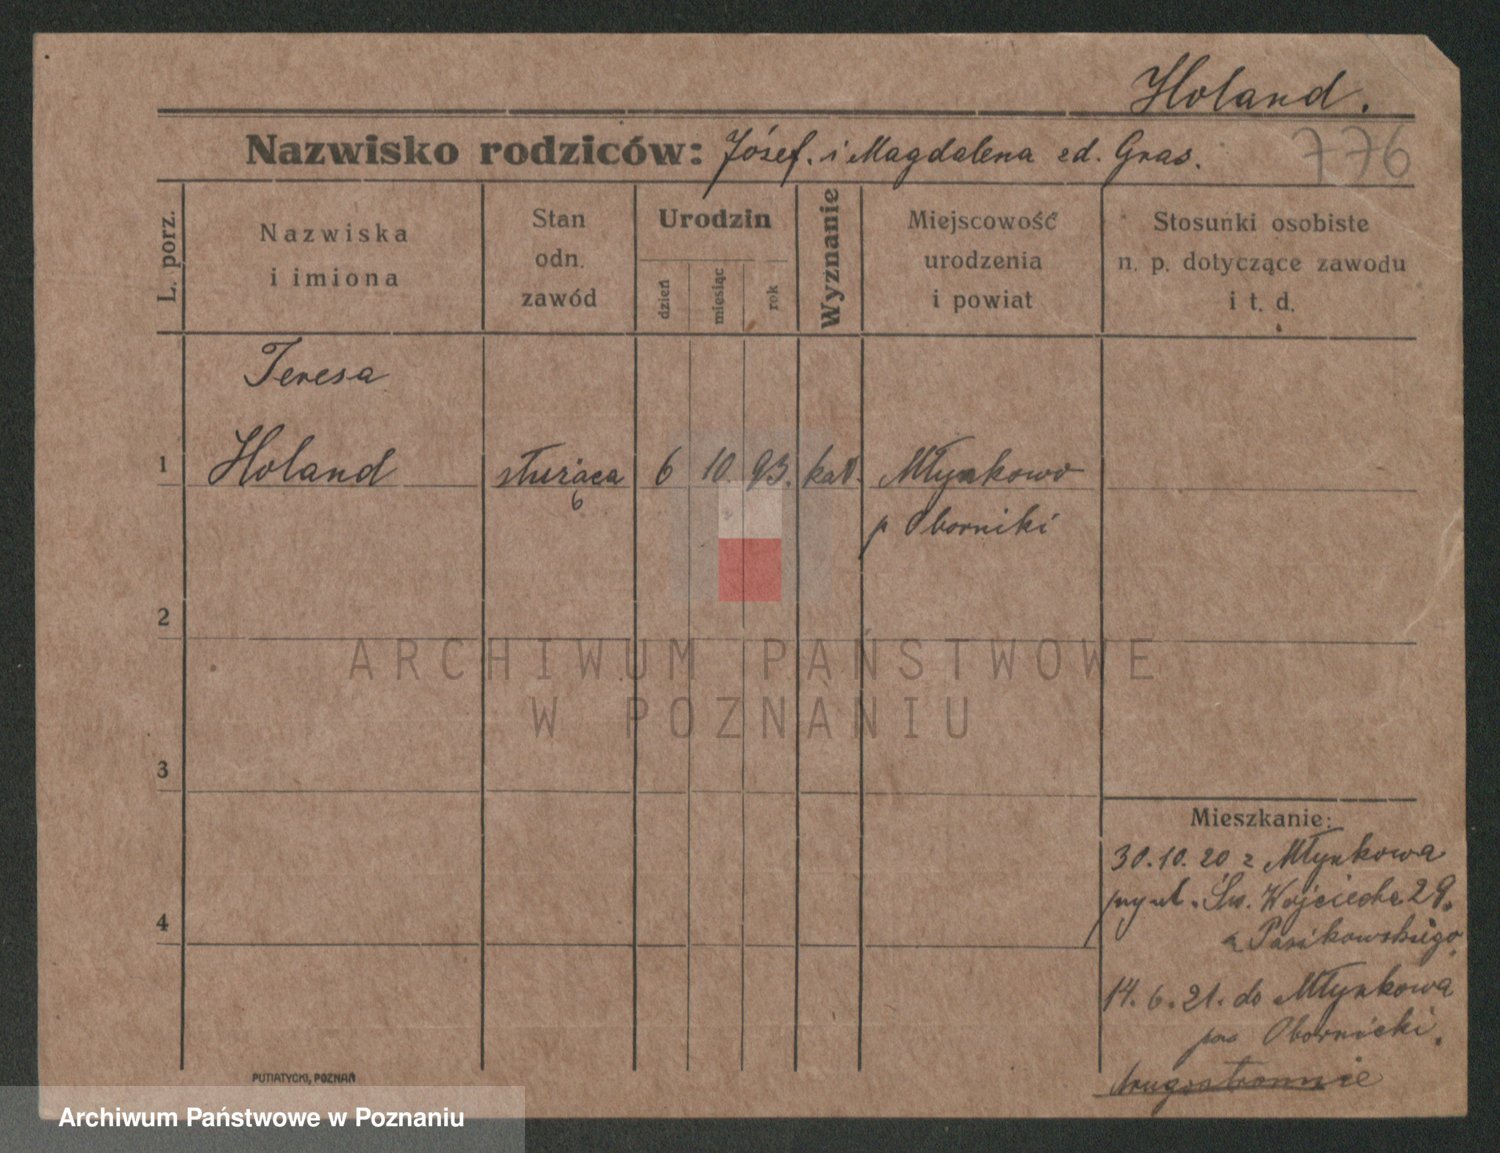 Holand.
Nazwisko rodziców: Józef. i Magdalena zd. Gras.
776
L. porz.
Nazwiska
i imiona
Stan
odn.
zawód
Urodzin
dzień
miesiąc
rok
Wyznanie
Miejscowość
urodzenia
i powiat
Stosunki osobiste
n. p. dotyczące zawodu
i t. d.
Teresa
1 Holand służąca 6 10. 93. kat. Młynkowo
p Oborniki
2
ARCHIWUM PAŃSTWOWE
W POZNANIU
3
Mieszkanie:
30.10.20 z Młynkowa
Św. Wojciecha 29.
u Pasikowskiego.
4
14.6.21. do Młynkowa
pow Obornicki.
PUTIATYCKI, POZNAŃ
Archiwum Państwowe w Poznaniu